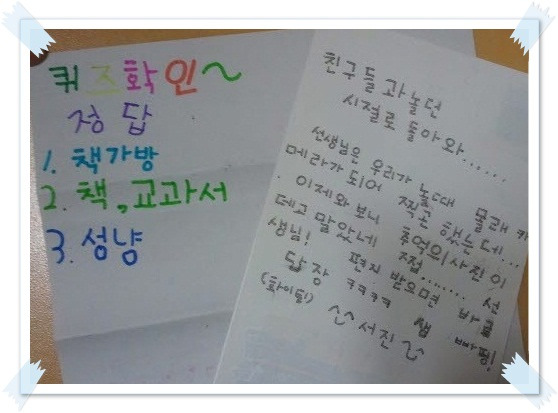 퀴즈확인~
정답
1. 책가방
2. 책, 교과서
3. 성냥
친구들과놀던
시절로 돌아와......
선생님은 우리가 놀대 몰래 카
메라가되어 찍곤 했는데...
이제와보니 추억의사진이
데고 말았네 쩝....... 선
생님! 편지 받으면 바로
답장 ㅋㅋㅋㅋ 쌤 빠띵!
(화이팅) ^^서진^^